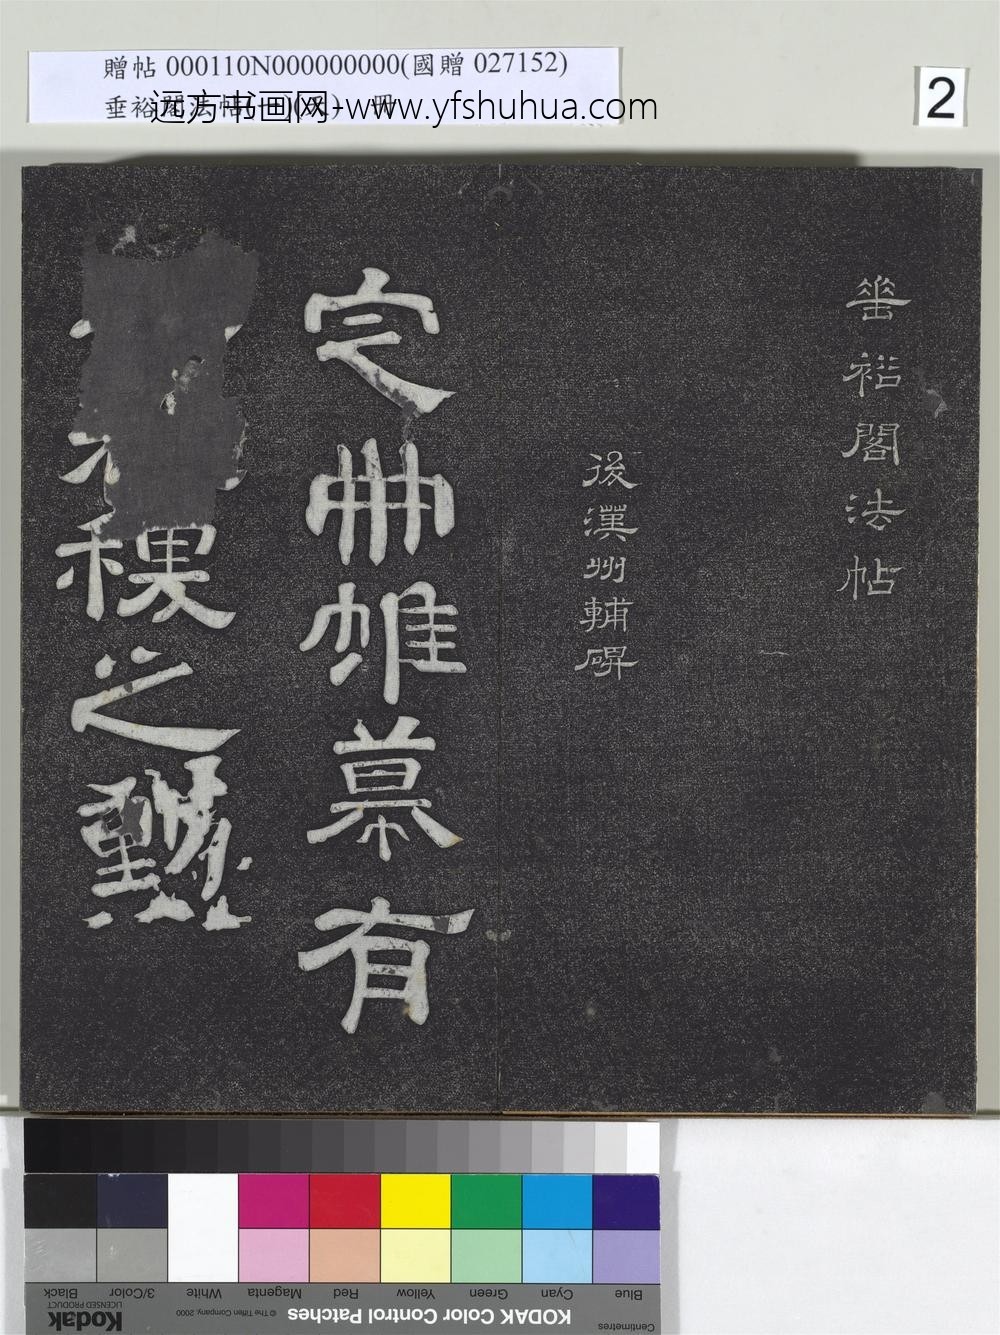 贈帖 000110N000000000(國贈 027152)
远方书画网-www.yfshuhua.com
2
垂裕閣法帖
後漢州輔碑
定冊帷幕有
稷之勲
Blue Cyan Green Yellow Red Magenta White 3/Color Black
Centimetres
KODAK Color Control Patches
© The Tiffen Company, 2000
Kodak
LICENSED PRODUCT